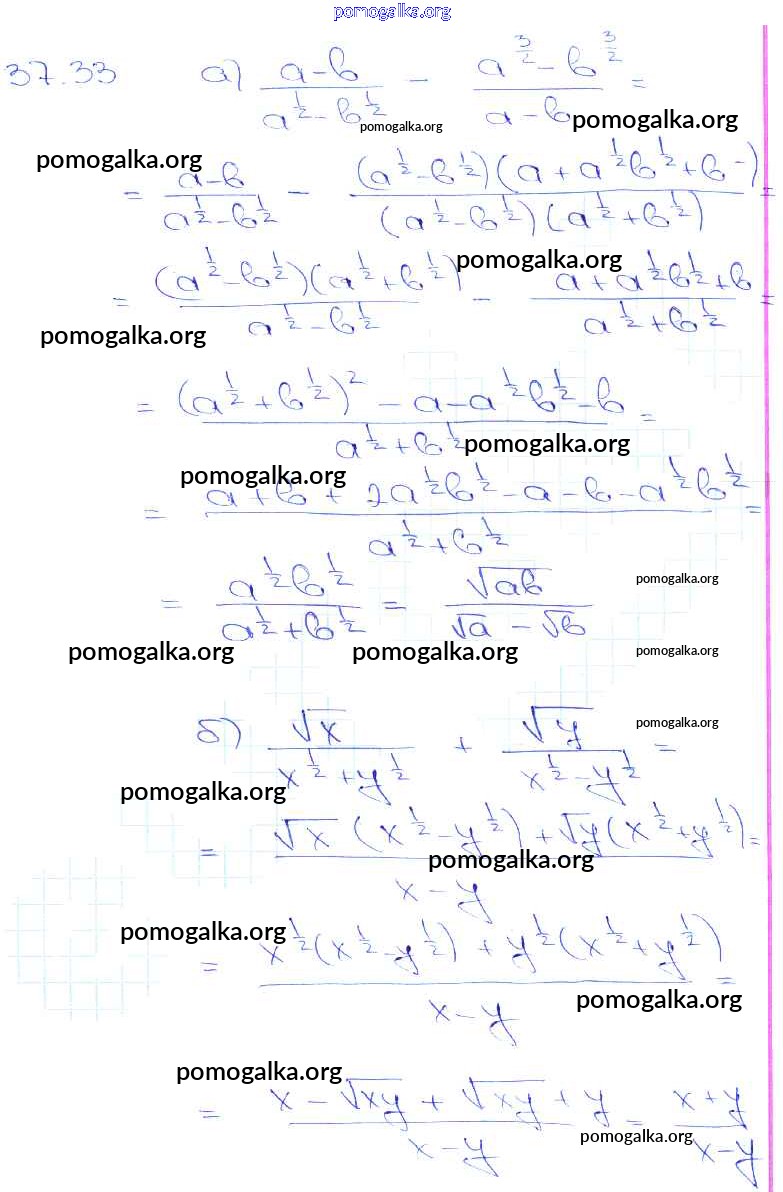 pomogalka.org
37.33 а) (a-b)/(a^(1/2) - b^(1/2)) - (a^(3/2) - b^(3/2))/(a-b) =
pomogalka.org pomogalka.org
pomogalka.org
= (a-b)/(a^(1/2) - b^(1/2)) - ((a^(1/2) - b^(1/2))(a + a^(1/2)b^(1/2) + b))/((a^(1/2) - b^(1/2))(a^(1/2) + b^(1/2))) =
pomogalka.org
= ((a^(1/2) - b^(1/2))(a^(1/2) + b^(1/2)))/(a^(1/2) - b^(1/2)) - (a + a^(1/2)b^(1/2) + b)/(a^(1/2) + b^(1/2)) =
pomogalka.org
= ((a^(1/2) + b^(1/2))^2 - a - a^(1/2)b^(1/2) - b)/(a^(1/2) + b^(1/2)) =
pomogalka.org
pomogalka.org
= (a + b + 2a^(1/2)b^(1/2) - a - b - a^(1/2)b^(1/2))/(a^(1/2) + b^(1/2)) =
pomogalka.org
= (a^(1/2)b^(1/2))/(a^(1/2) + b^(1/2)) = √(ab)/(√a - √b)
pomogalka.org pomogalka.org pomogalka.org
pomogalka.org
б) √x/(x^(1/2) + y^(1/2)) + √y/(x^(1/2) - y^(1/2)) =
pomogalka.org
= (√x(x^(1/2) - y^(1/2)) + √y(x^(1/2) + y^(1/2)))/(x-y) =
pomogalka.org
pomogalka.org
= (x^(1/2)(x^(1/2) - y^(1/2)) + y^(1/2)(x^(1/2) + y^(1/2)))/(x-y) =
pomogalka.org
pomogalka.org
= (x - √(xy) + √(xy) + y)/(x-y) = (x+y)/(x-y)
pomogalka.org